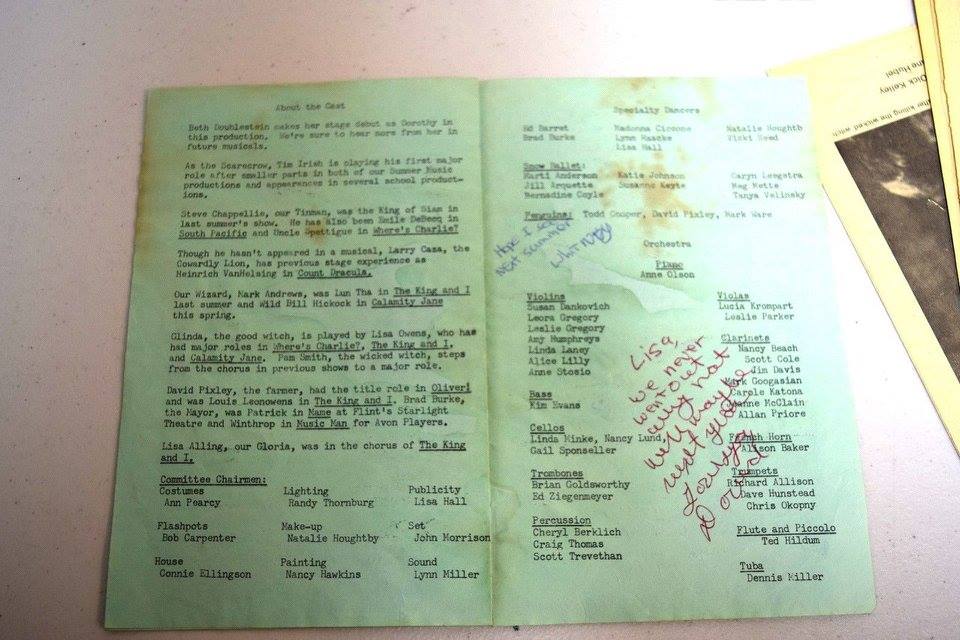 About the Cast
Beth Doublestein makes her stage debut as Dorothy in
this production. We're sure to hear more from her in
future musicals.
As the Scarecrow, Tim Irish is playing his first major
role after smaller parts in both of our Summer Music
productions and appearances in several school product-
ions.
Steve Chappellie, our Tinman, was the King of Siam in
last summer's show. He has also been Emile DeBecq in
South Pacific and Uncle Spettigue in Where's Charlie?
Though he hasn't appeared in a musical, Larry Casa, the
Cowardly Lion, has previous stage experience as
Heinrich VanHelsing in Count Dracula.
Our Wizard, Mark Andrews, was Lun Tha in The King and I
last summer and Wild Bill Hickock in Calamity Jane
this spring.
Glinda, the good witch, is played by Lisa Owens, who has
had major roles in Where's Charlie?, The King and I,
and Calamity Jane. Pam Smith, the wicked witch, steps
from the chorus in previous shows to a major role.
David Pixley, the farmer, had the title role in Oliver!
and was Louis Leonowens in The King and I. Brad Burke,
the Mayor, was Patrick in Mame at Flint's Starlight
Theatre and Winthrop in Music Man for Avon Players.
Lisa Alling, our Gloria, was in the chorus of The King
and I.
Committee Chairmen:
Costumes Lighting Publicity
Ann Pearcy Randy Thornburg Lisa Hall
Flashpots Make-up Set
Bob Carpenter Natalie Houghtby John Morrison
House Painting Sound
Connie Ellingson Nancy Hawkins Lynn Miller
Specialty Dancers
Ed Barret Madonna Ciccone Natalie Houghtb
Brad Burke Lynn Raacke Vicki Reed
Lisa Hall
Snow Ballet:
Marti Anderson Katie Johnson Caryn Leegstra
Jill Arquette Susanne Keyte Meg Mette
Bernadine Coyle Tanya Velinsky
Penguins: Todd Cooper, David Pixley, Mark Ware
Hope I see
next summer
Orchestra
Piano
Anne Olson
Violins
Susan Dankovich
Leora Gregory
Leslie Gregory
Amy Humphreys
Linda Laney
Alice Lilly
Anne Stosio
Bass
Kim Evans
Cellos
Linda Minke, Nancy Lund,
Gail Sponseller
Trombones
Brian Goldsworthy
Ed Ziegenmeyer
Percussion
Cheryl Berklich
Craig Thomas
Scott Trevethan
Violas
Lucia Krompart
Leslie Parker
Clarinets
Nancy Beach
Scott Cole
Jim Davis
Mark Googasian
Carole Katona
Joanne McClain
Allan Priore
French Horn
Alison Baker
Trumpets
Richard Allison
Dave Hunstead
Chris Okopny
Flute and Piccolo
Ted Hildum
Tuba
Dennis Miller
Lisa,
we never
went out
why not
well maybe
next year
Love ya
David
Dick Kelley
ne Hubel
fter killing the wicked witch